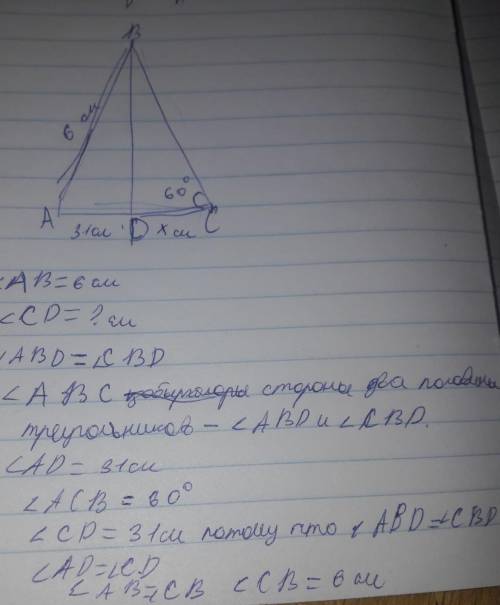 B
6 см
60°
A
31см D x см C
∠AB=6см
∠CD=? см
∠ABD=∠CBD
∠ABC стороны два половины
треугольников - ∠ABD и ∠CBD.
∠AD=31см
∠ACB=60°
∠CD=31см потому что ∠ABD=∠CBD
∠AD=∠CD
∠AB=∠CB ∠CB=6см